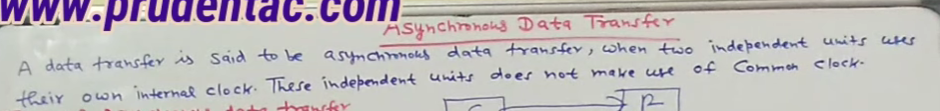 www.prudentac.com
Asynchronous Data Transfer
A data transfer is said to be asynchronous data transfer, when two independent units uses
their own internal clock. These independent units does not make use of Common clock.
data transfer
R